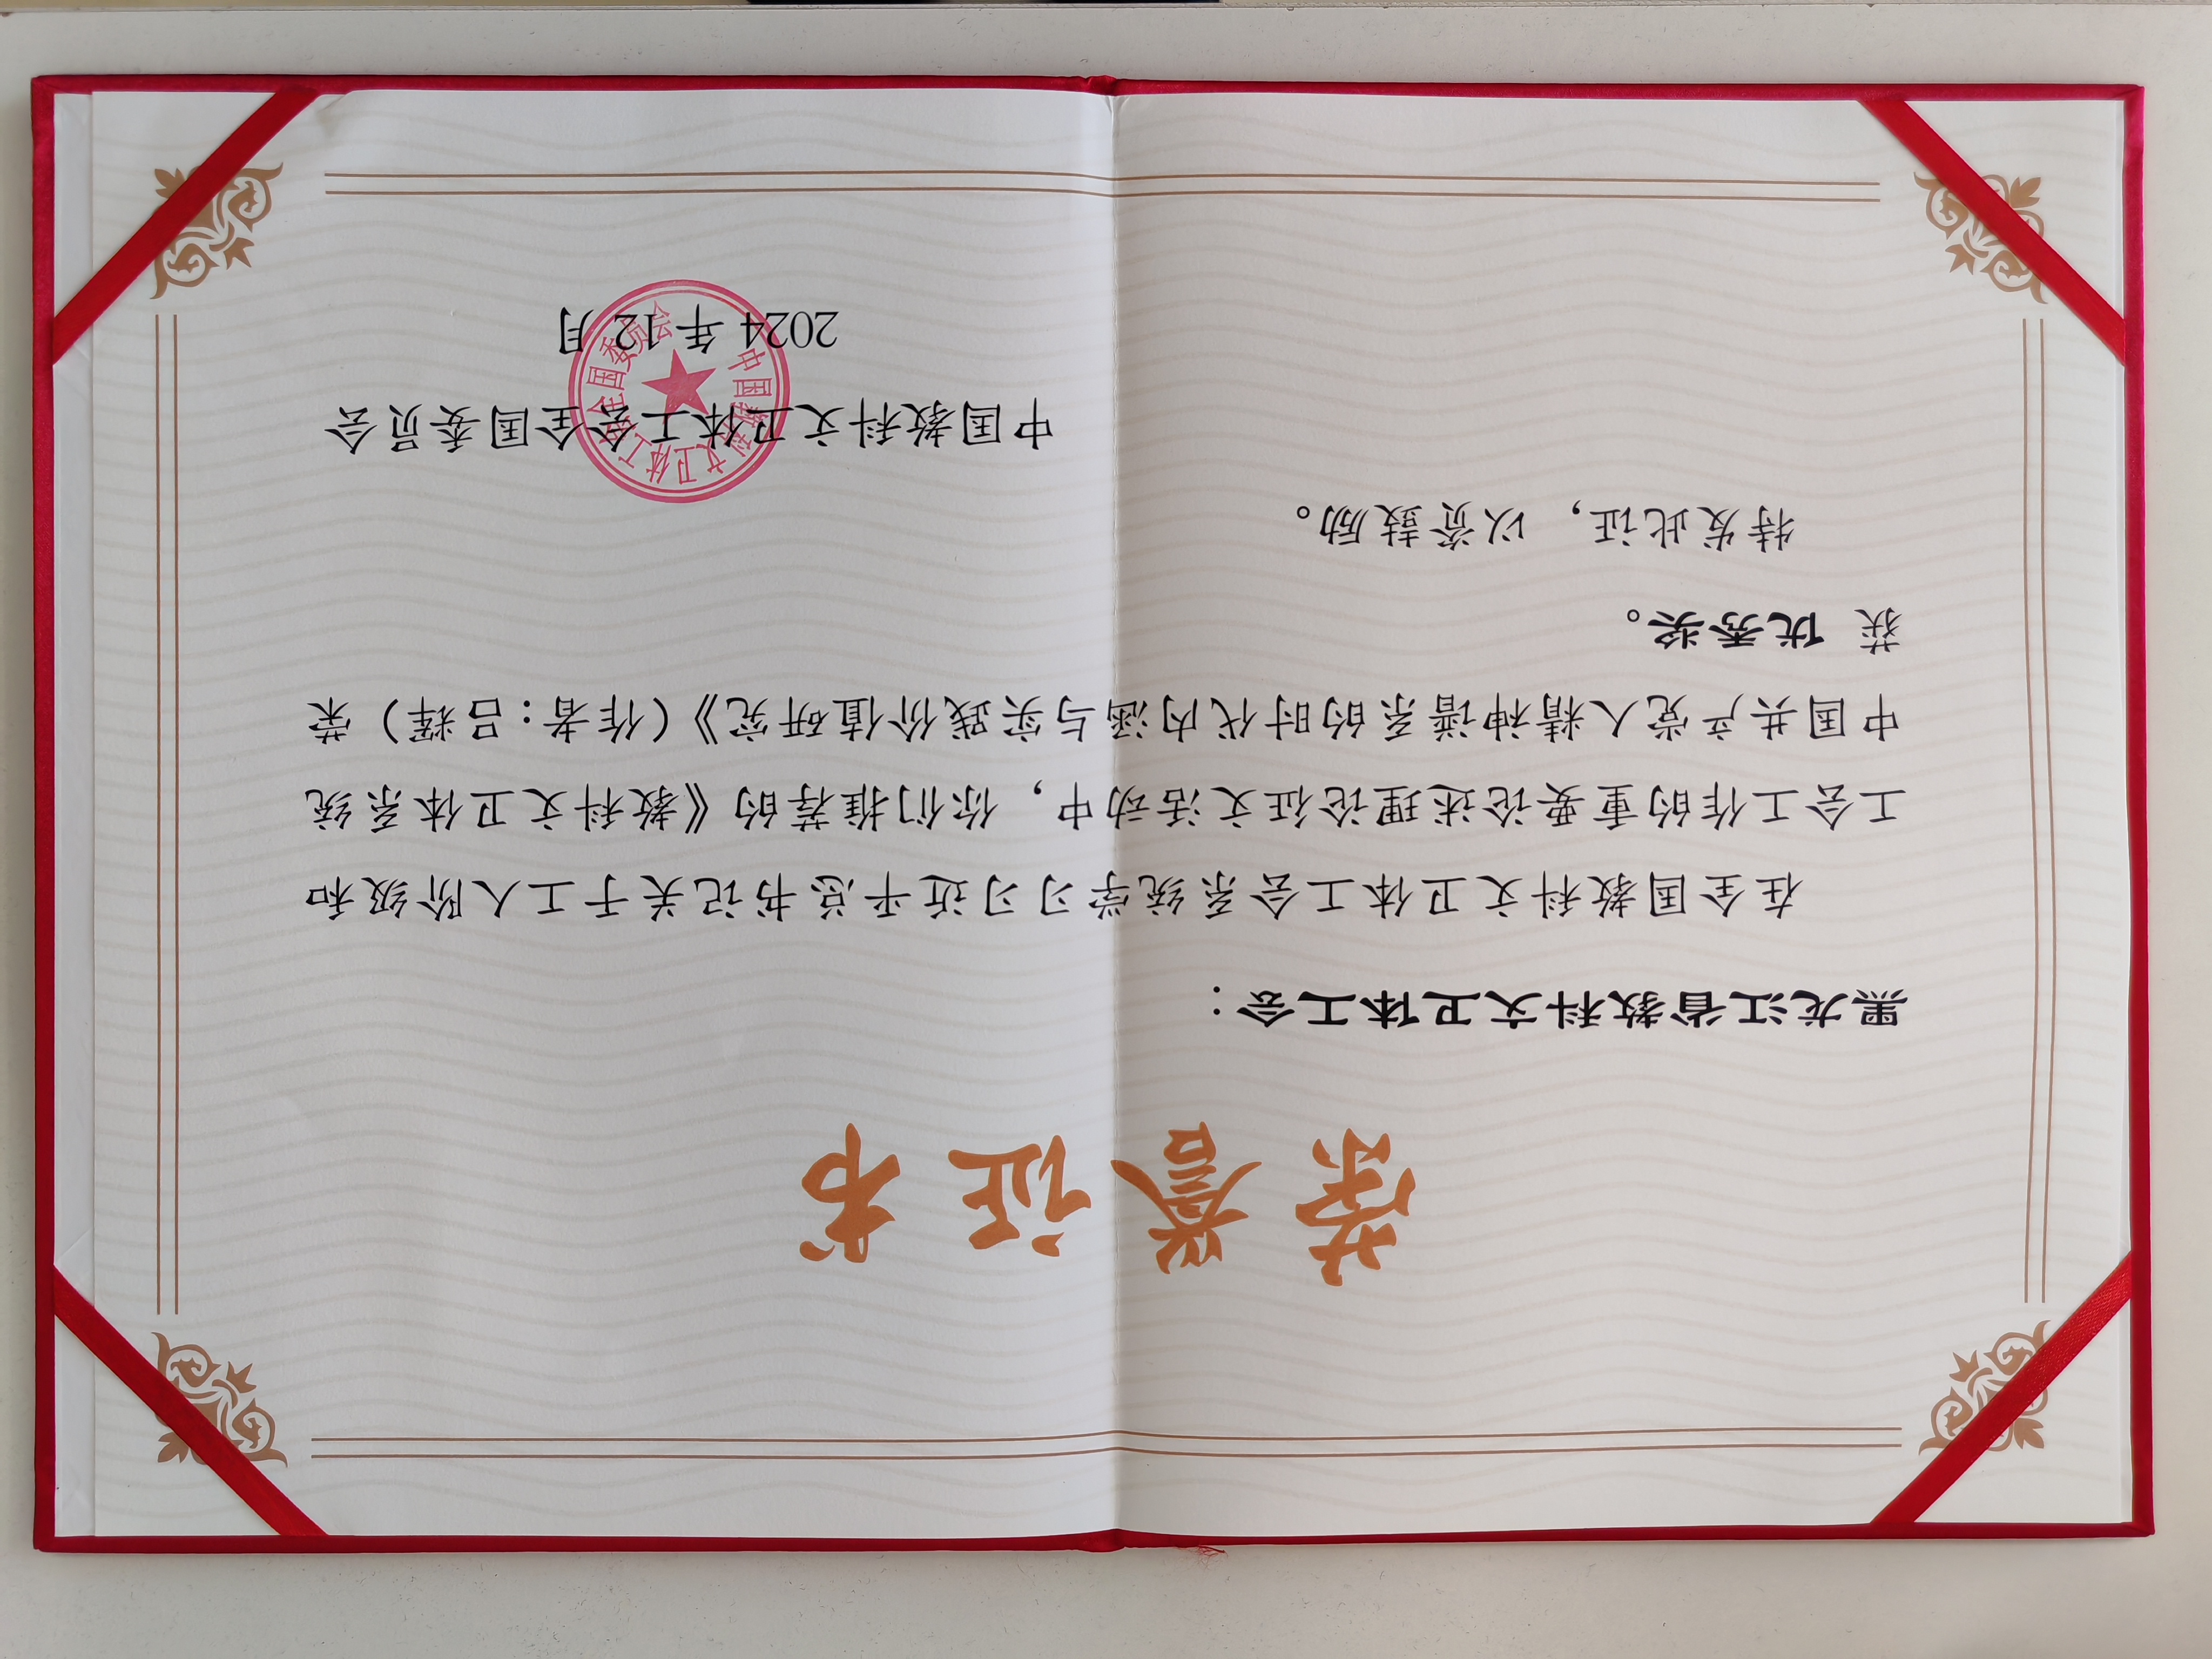 荣誉证书
黑龙江省教科文卫体工会：
在全国教科文卫体工会系统学习习近平总书记关于工人阶级和
工会工作的重要论述理论征文活动中，你们推荐的《教科文卫体系统
中国共产党人精神谱系的时代内涵与实践价值研究》（作者：吕辉）荣
获 优秀奖。
特发此证，以资鼓励。
中国教科文卫体工会全国委员会
2024年12月
中国教科文卫体工会全国委员会